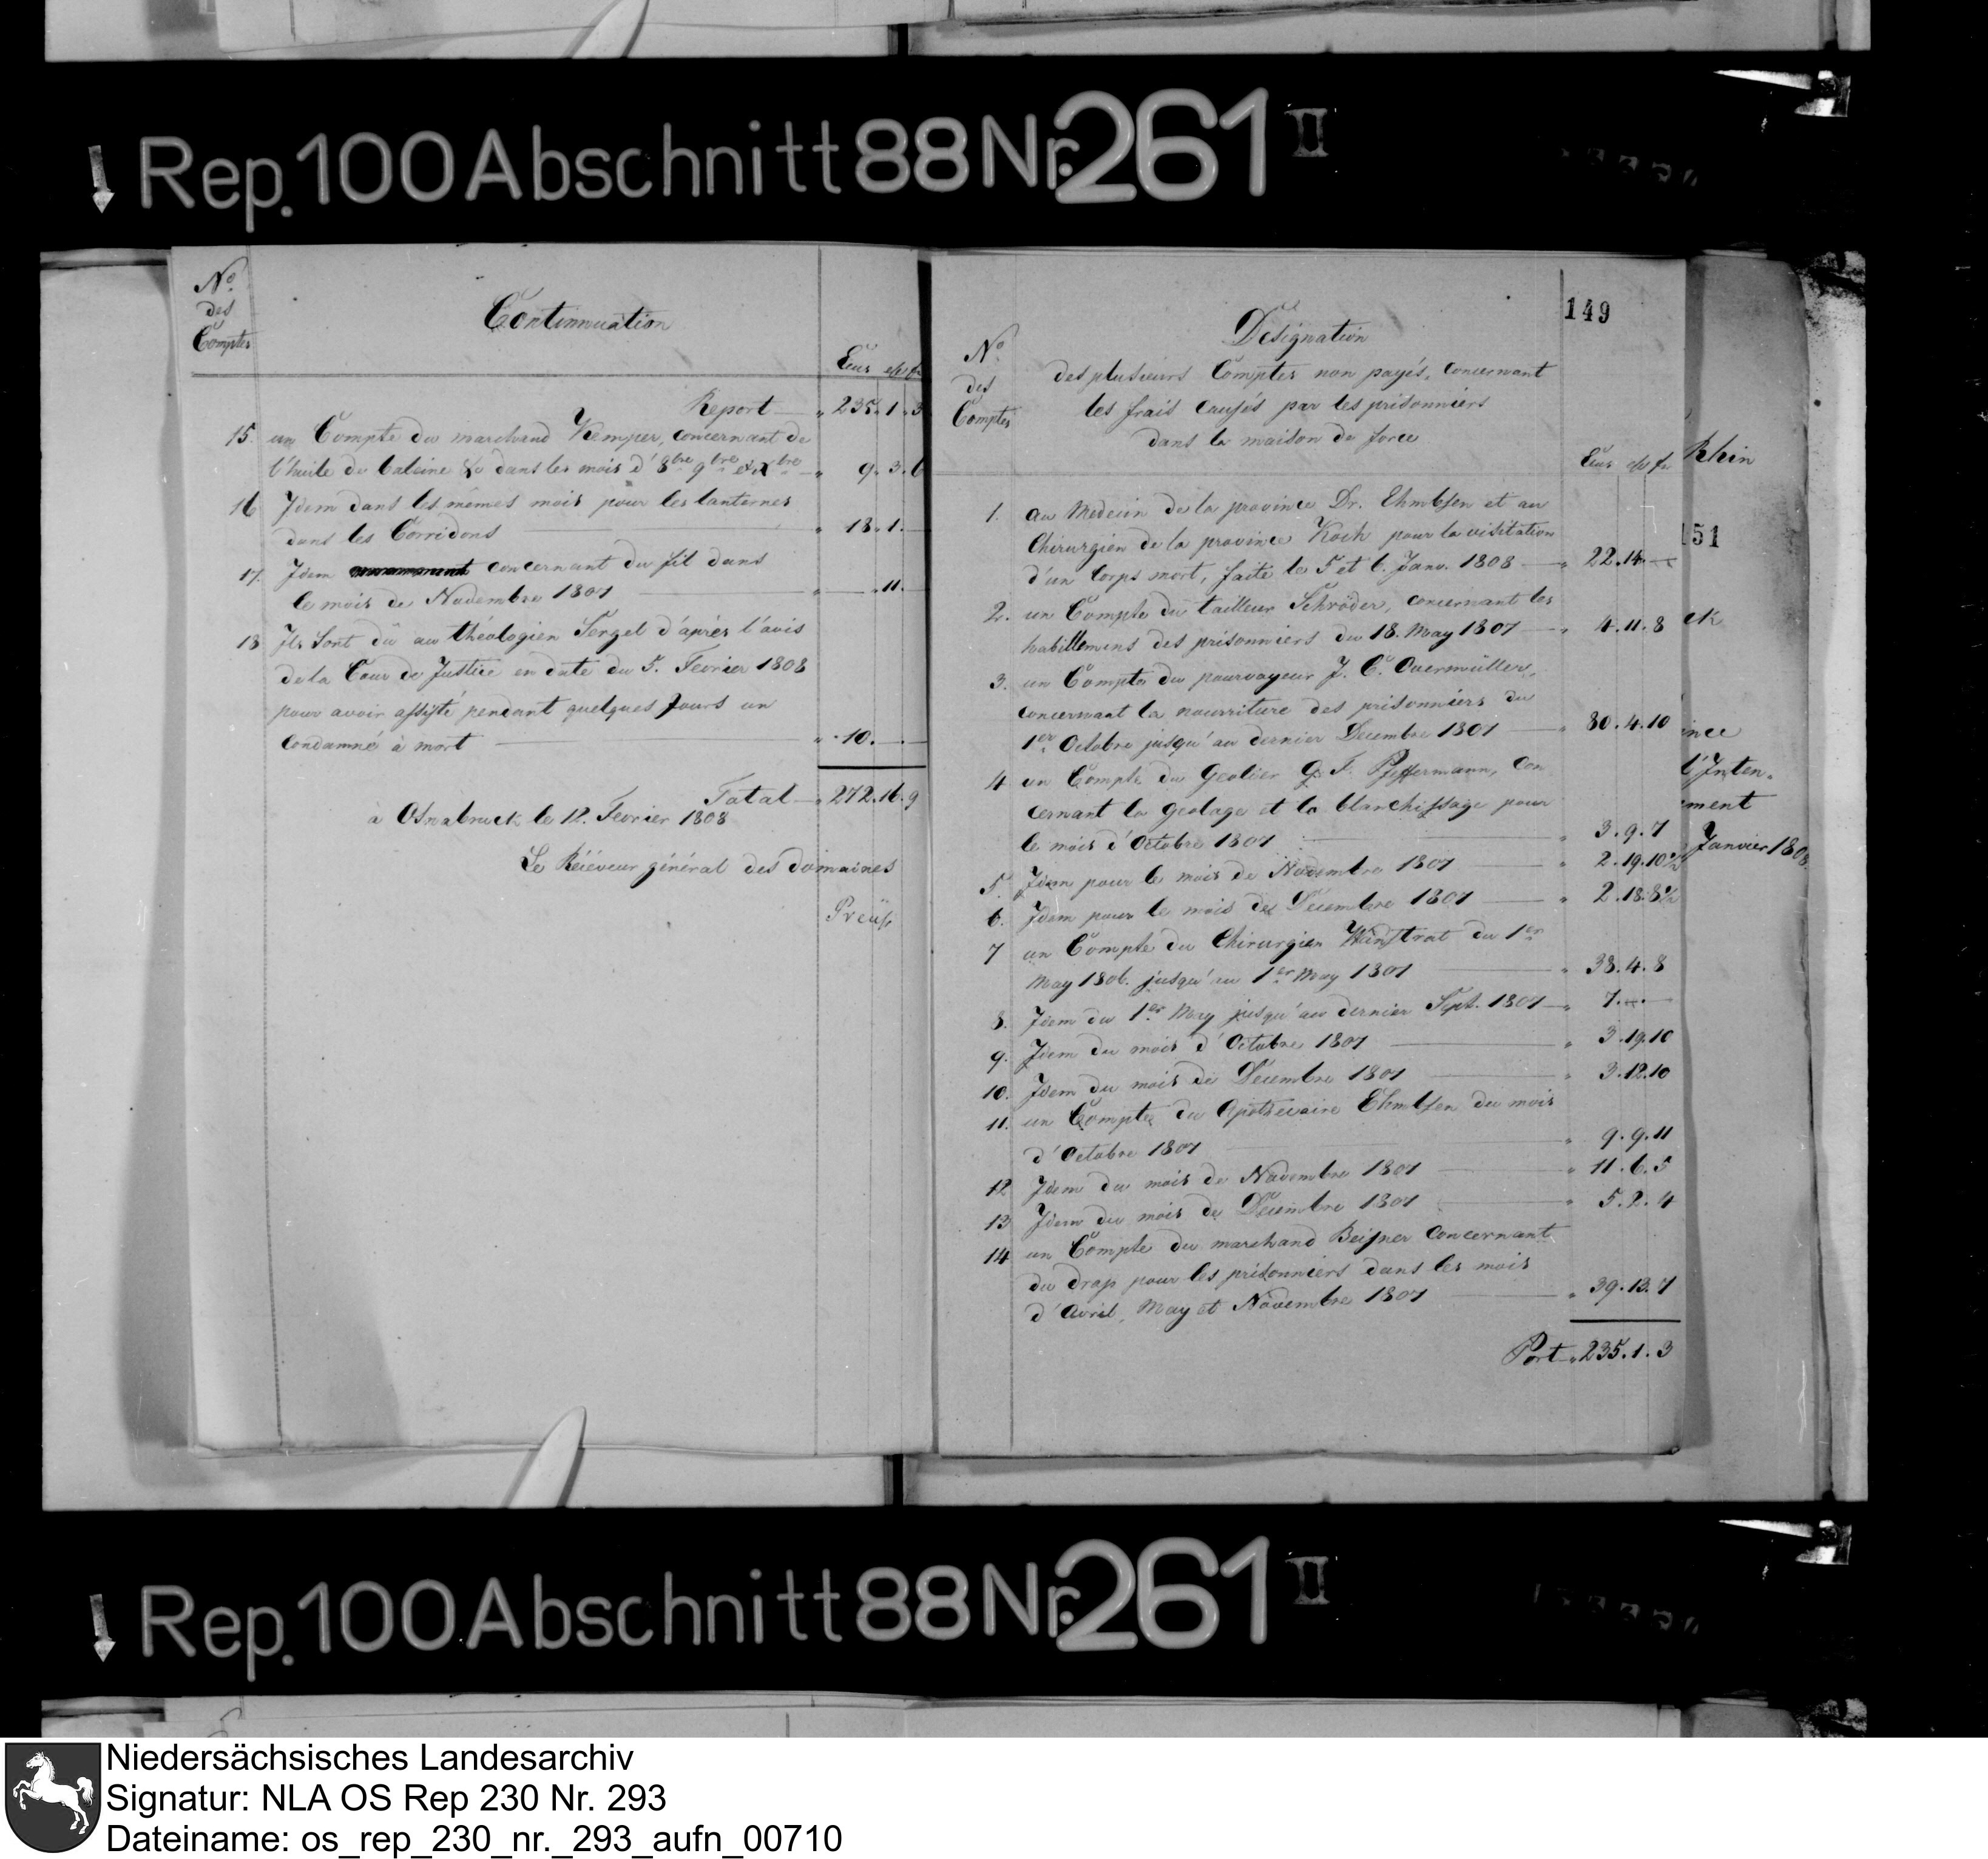 Rep. 100 Abschnitt 88 Nr. 261 II
No.
des
Comptes
Continuation
Ecus
Report 235. 1. 3
15. un Compte du marchand Kemper, concernant de
l'huile de baleine &c dans les mois d' 8bre 9bre et Xbre 9. 3. 6
16 Idem dans les mêmes mois pour les lanternes
dans les Corridons 18. 1.
17. Idem concernant du fil dans
le mois de Novembre 1807 11.
18 Ils sont dû au théologien Sergel d'après l'avis
de la Cour de Justice en date du 5. Fevrier 1808
pour avoir assisté pendant quelques Jours un
condamné à mort 10.
Total 272. 16. 9
à Osnabruck le 12. Fevrier 1808
Le Réceveur général des domaines
Preuss
149
No
des
Comptes
Désignation
des plusieurs Comptes non payés, concernant
les frais causés par les prisonniers
dans la maison de force
Ecus
1. au Medecin de la province Dr. Ehmbsen et au
Chirurgien de la province Koch pour la visitation
d'un Corps mort, faite le 5 et 6. Janv. 1808 22. 14.
2. un Compte du tailleur Schröder, concernant les
habillemens des prisonniers du 18. May 1807 4. 11. 8
3. un Compte du pourvoyeur J. C. Overmüller,
concernant la nourriture des prisonniers du
1er Octobre jusqu'au dernier Decembre 1807 80. 4. 10
4 un Compte du Geolier G. F. Pfeffermann, con
cernant la geolage et la blanchissage pour
le mois d'Octobre 1807 3. 9. 7
5. Idem pour le mois de Novembre 1807 2. 19. 10½
6. Idem pour le mois de Decembre 1807 2. 18. 8½
7 un Compte du Chirurgien Wünstrat du 1er
May 1806. jusqu'au 1er May 1807 38. 4. 8
8. Idem du 1er May jusqu'au dernier Sept. 1807 7.
9. Idem du mois d'Octobre 1807 3. 19. 10
10. Idem du mois de Decembre 1807 3. 12. 10
11. un Compte du Apothecaire Ehmbsen du mois
d'Octobre 1807 9. 9. 11
12 Idem du mois de Novembre 1807 11. 6. 5
13 Idem du mois de Decembre 1807 5. 2. 4
14 un Compte du marchand Beissner concernant
du drap pour les prisonniers dans les mois
d'Avril, May et Novembre 1807 39. 13. 7
Port 235. 1. 3
Rhin
151
ck
ince
l'Inten-
ment
Janvier 1808
Rep. 100 Abschnitt 88 Nr. 261 II
Niedersächsisches Landesarchiv
Signatur: NLA OS Rep 230 Nr. 293
Dateiname: os_rep_230_nr._293_aufn_00710